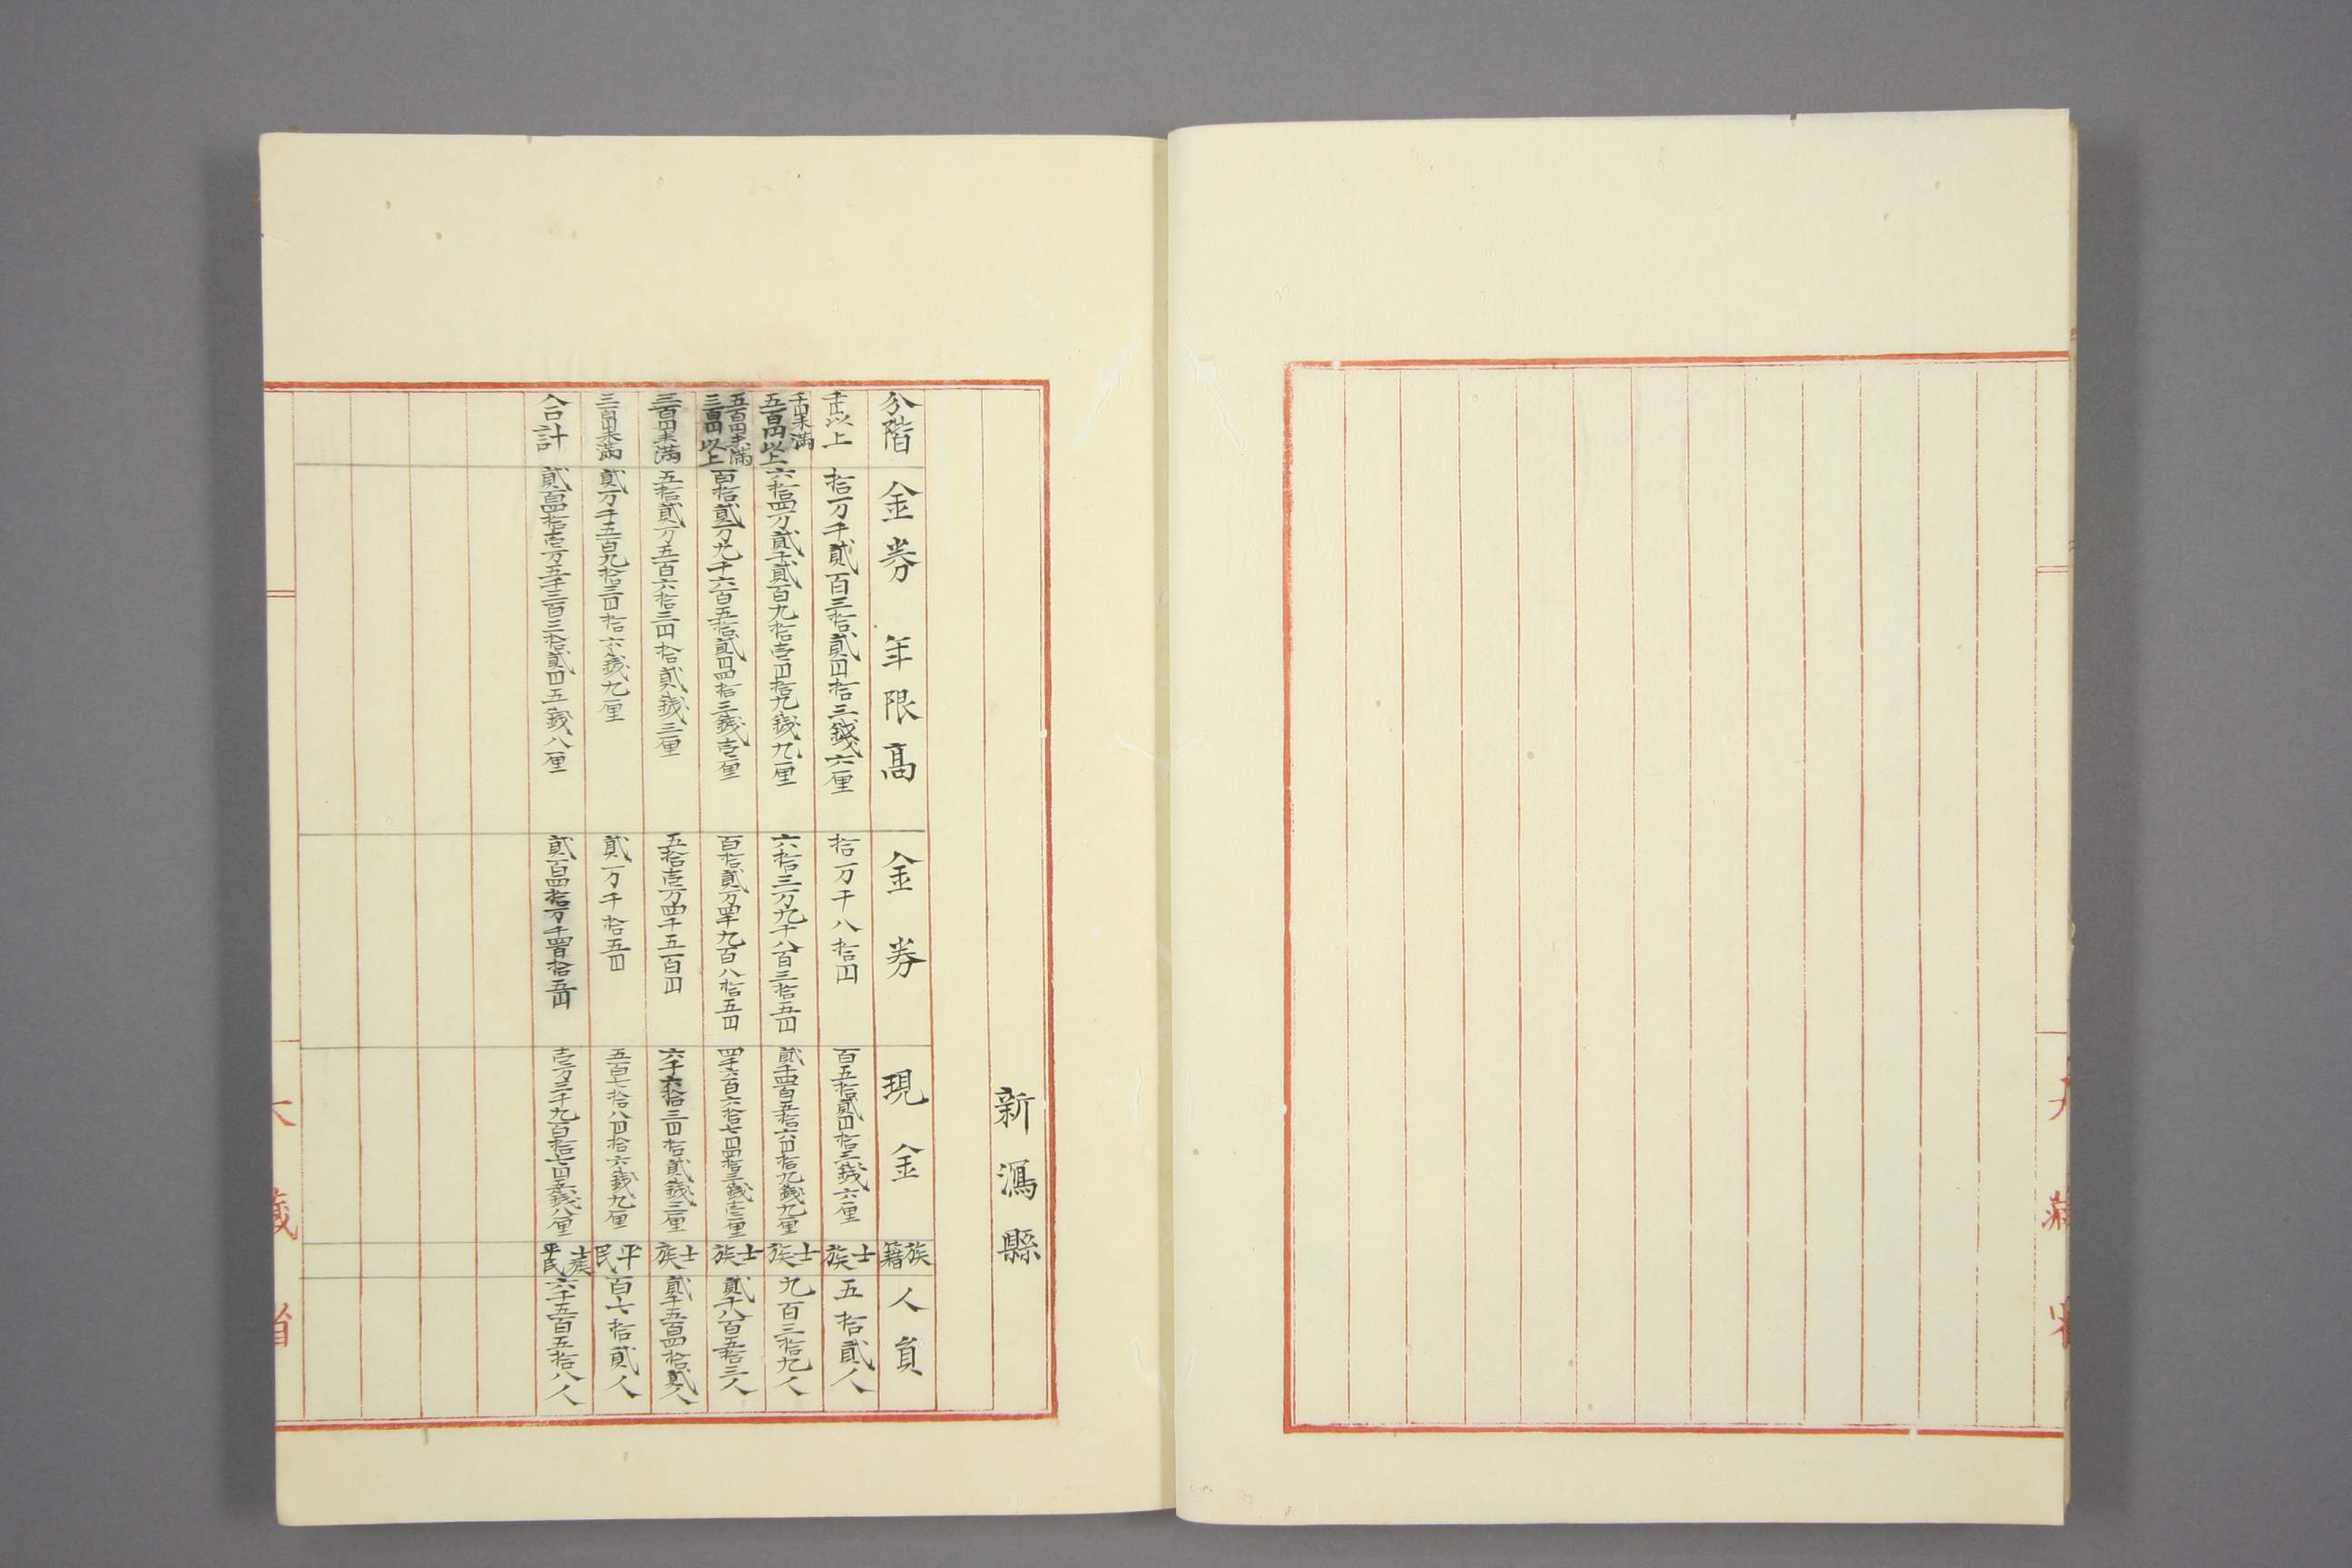 新潟縣
分階 金券年限高 金券 現金 族籍 人員
千円以上 拾万千貳百三拾貳円拾三銭六厘 拾万千八拾円 百五拾貳円拾三銭六厘 士族 五拾貳人
千円未満五百円以上 六拾四万貳千貳百九拾壱円拾九銭九厘 六拾三万九千八百三拾五円 貳千四百五拾六円拾九銭九厘 士族 九百三拾九人
五百円未満三百円以上 百拾貳万九千六百五拾貳円四拾三銭壱厘 百拾貳万四千九百八拾五円 四千六百六拾七円四拾三銭壱厘 士族 貳千八百五拾三人
三百円未満 五拾貳万五百六拾三円拾貳銭三厘 五拾壱万四千五百円 六千六拾三円拾貳銭三厘 士族 貳千五百四拾貳人
三百円未満 貳万千五百九拾三円拾六銭九厘 貳万千拾五円 五百七拾八円拾六銭九厘 平民 百七拾貳人
合計 貳百四拾壱万五千三百三拾貳円五銭八厘 貳百四拾万千四百拾五円 壱万三千九百拾七円五銭八厘 士族平民 六千五百五拾八人